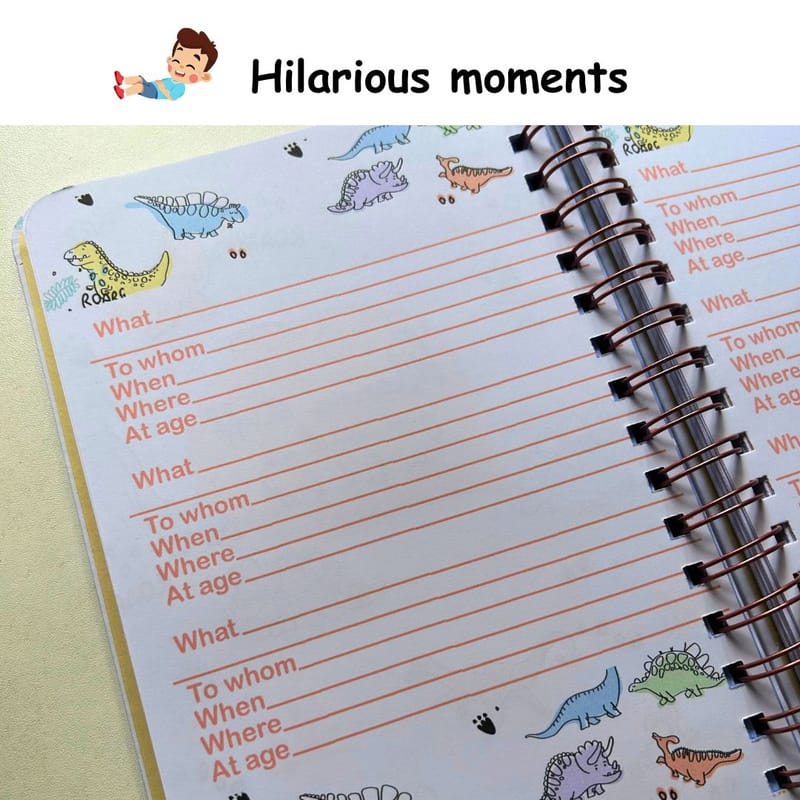 Hilarious moments
ROARG
What
To whom
When
Where
At age
What
To whom
When
Where
At age
What
To whom
When
Where
At age
ROARG
What
To whom
When
Where
At age
What
To whom
When
Where
At ag
Wh